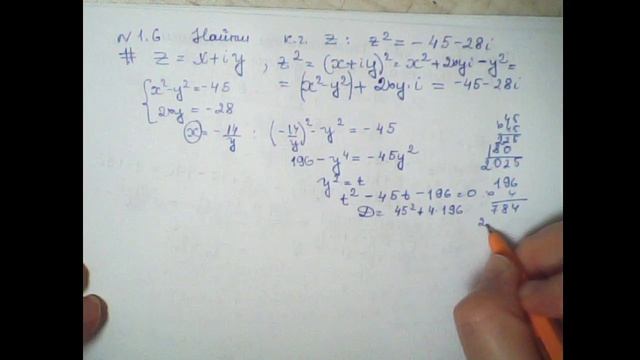 №1.6 Найти к.ч. z : z² = -45-28i
# z = x+iy , z² = (x+iy)² = x²+2xyi-y² =
= (x²-y²)+2xy·i = -45-28i
{ x²-y² = -45
2xy = -28
x = -14/y : (-14/y)² - y² = -45
196 - y⁴ = -45y²
y² = t
t² - 45t - 196 = 0
D = 45² + 4·196
45
x 45
225
180
2025
196
x 4
784
2